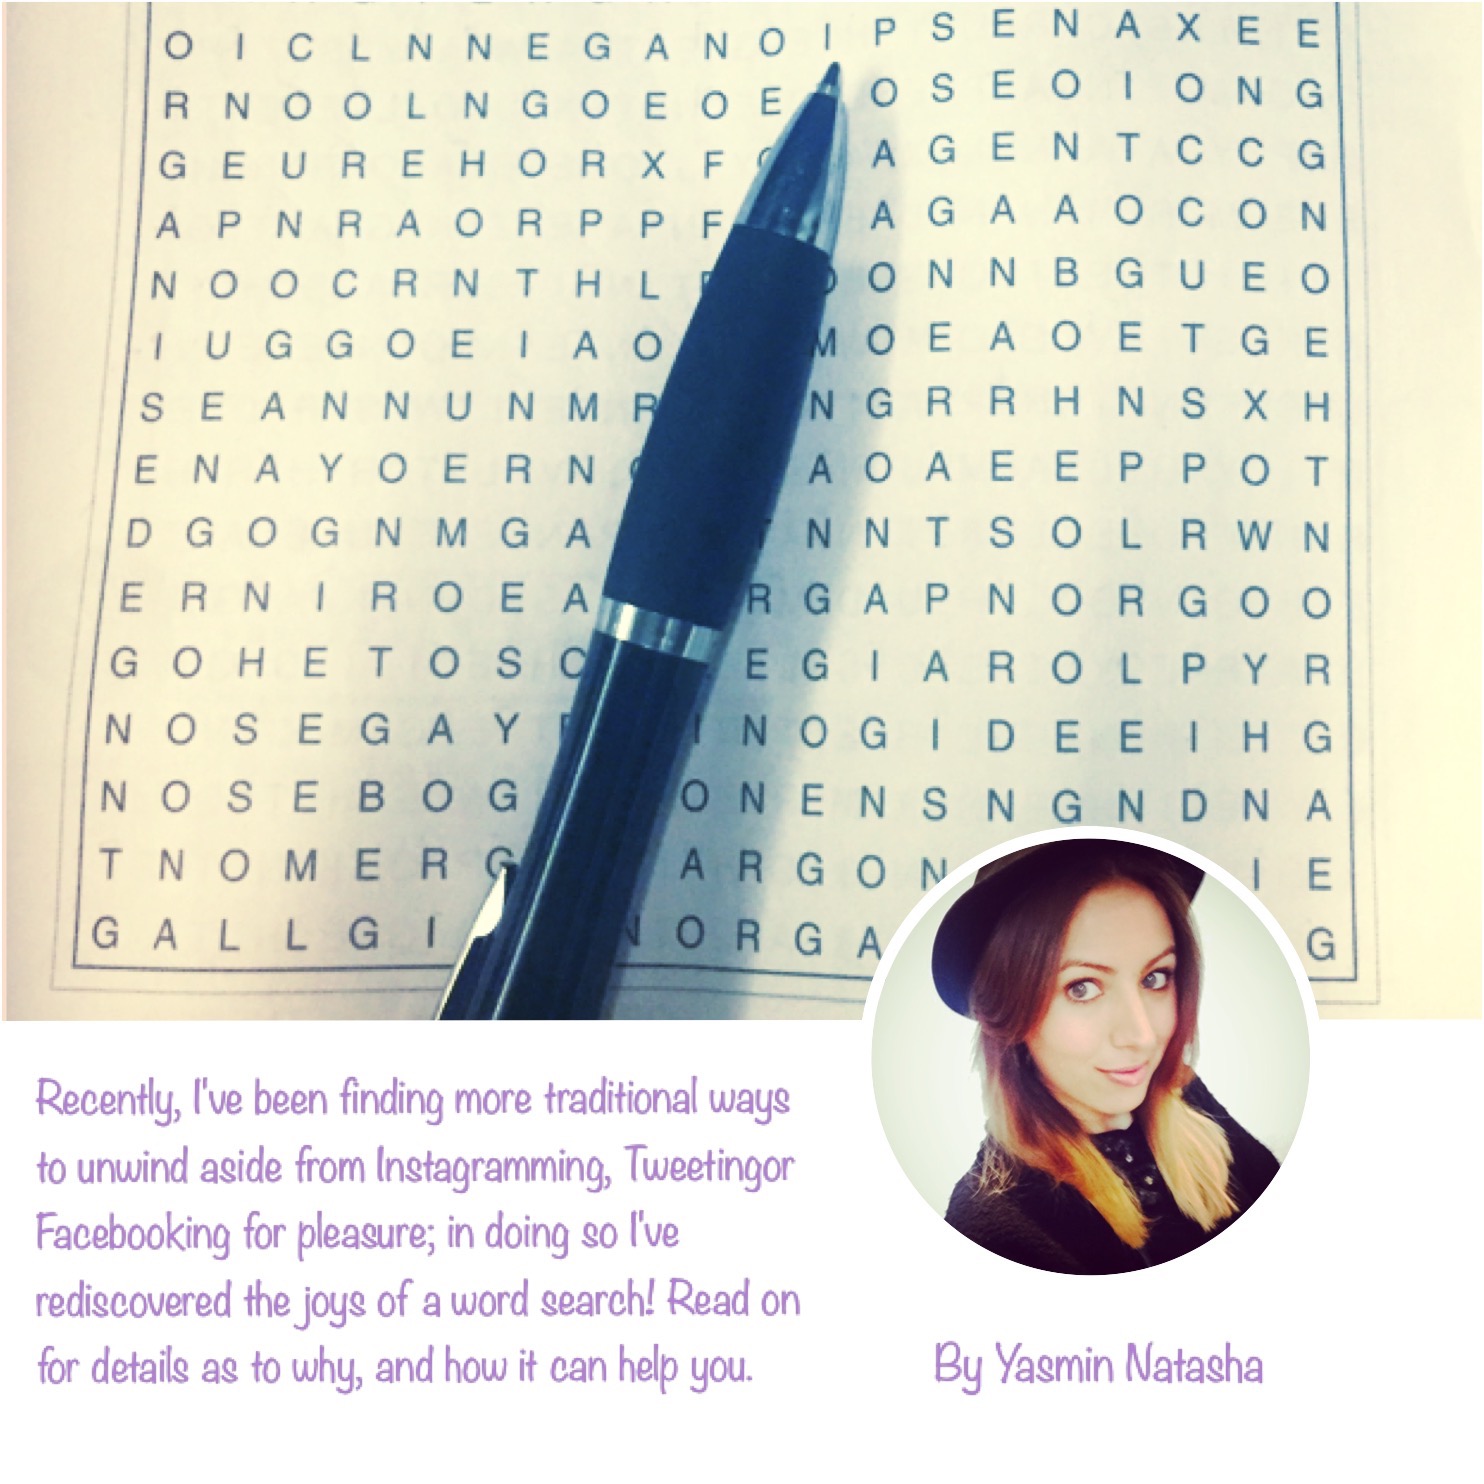 O I C L N N E G A N O I P S E N A X E E
R N O O L N G O E O E O S E O I O N G
G E U R E H O R X F A G E N T C C G
A P N R A O R P P F A G A A O C O N
N O O C R N T H L O N N B G U E O
I U G G O E I A O M O E A O E T G E
S E A N N U N M R N G R R H N S X H
E N A Y O E R N A O A E E P P O T
D G O G N M G A N N T S O L R W N
E R N I R O E A R G A P N O R G O O
G O H E T O S C E G I A R O L P Y R
N O S E G A Y I N O G I D E E I H G
N O S E B O G O N E N S N G N D N A
T N O M E R G A R G O N I E
G A L L G I N O R G A G
Recently, I've been finding more traditional ways
to unwind aside from Instagramming, Tweetingor
Facebooking for pleasure; in doing so I've
rediscovered the joys of a word search! Read on
for details as to why, and how it can help you.
By Yasmin Natasha